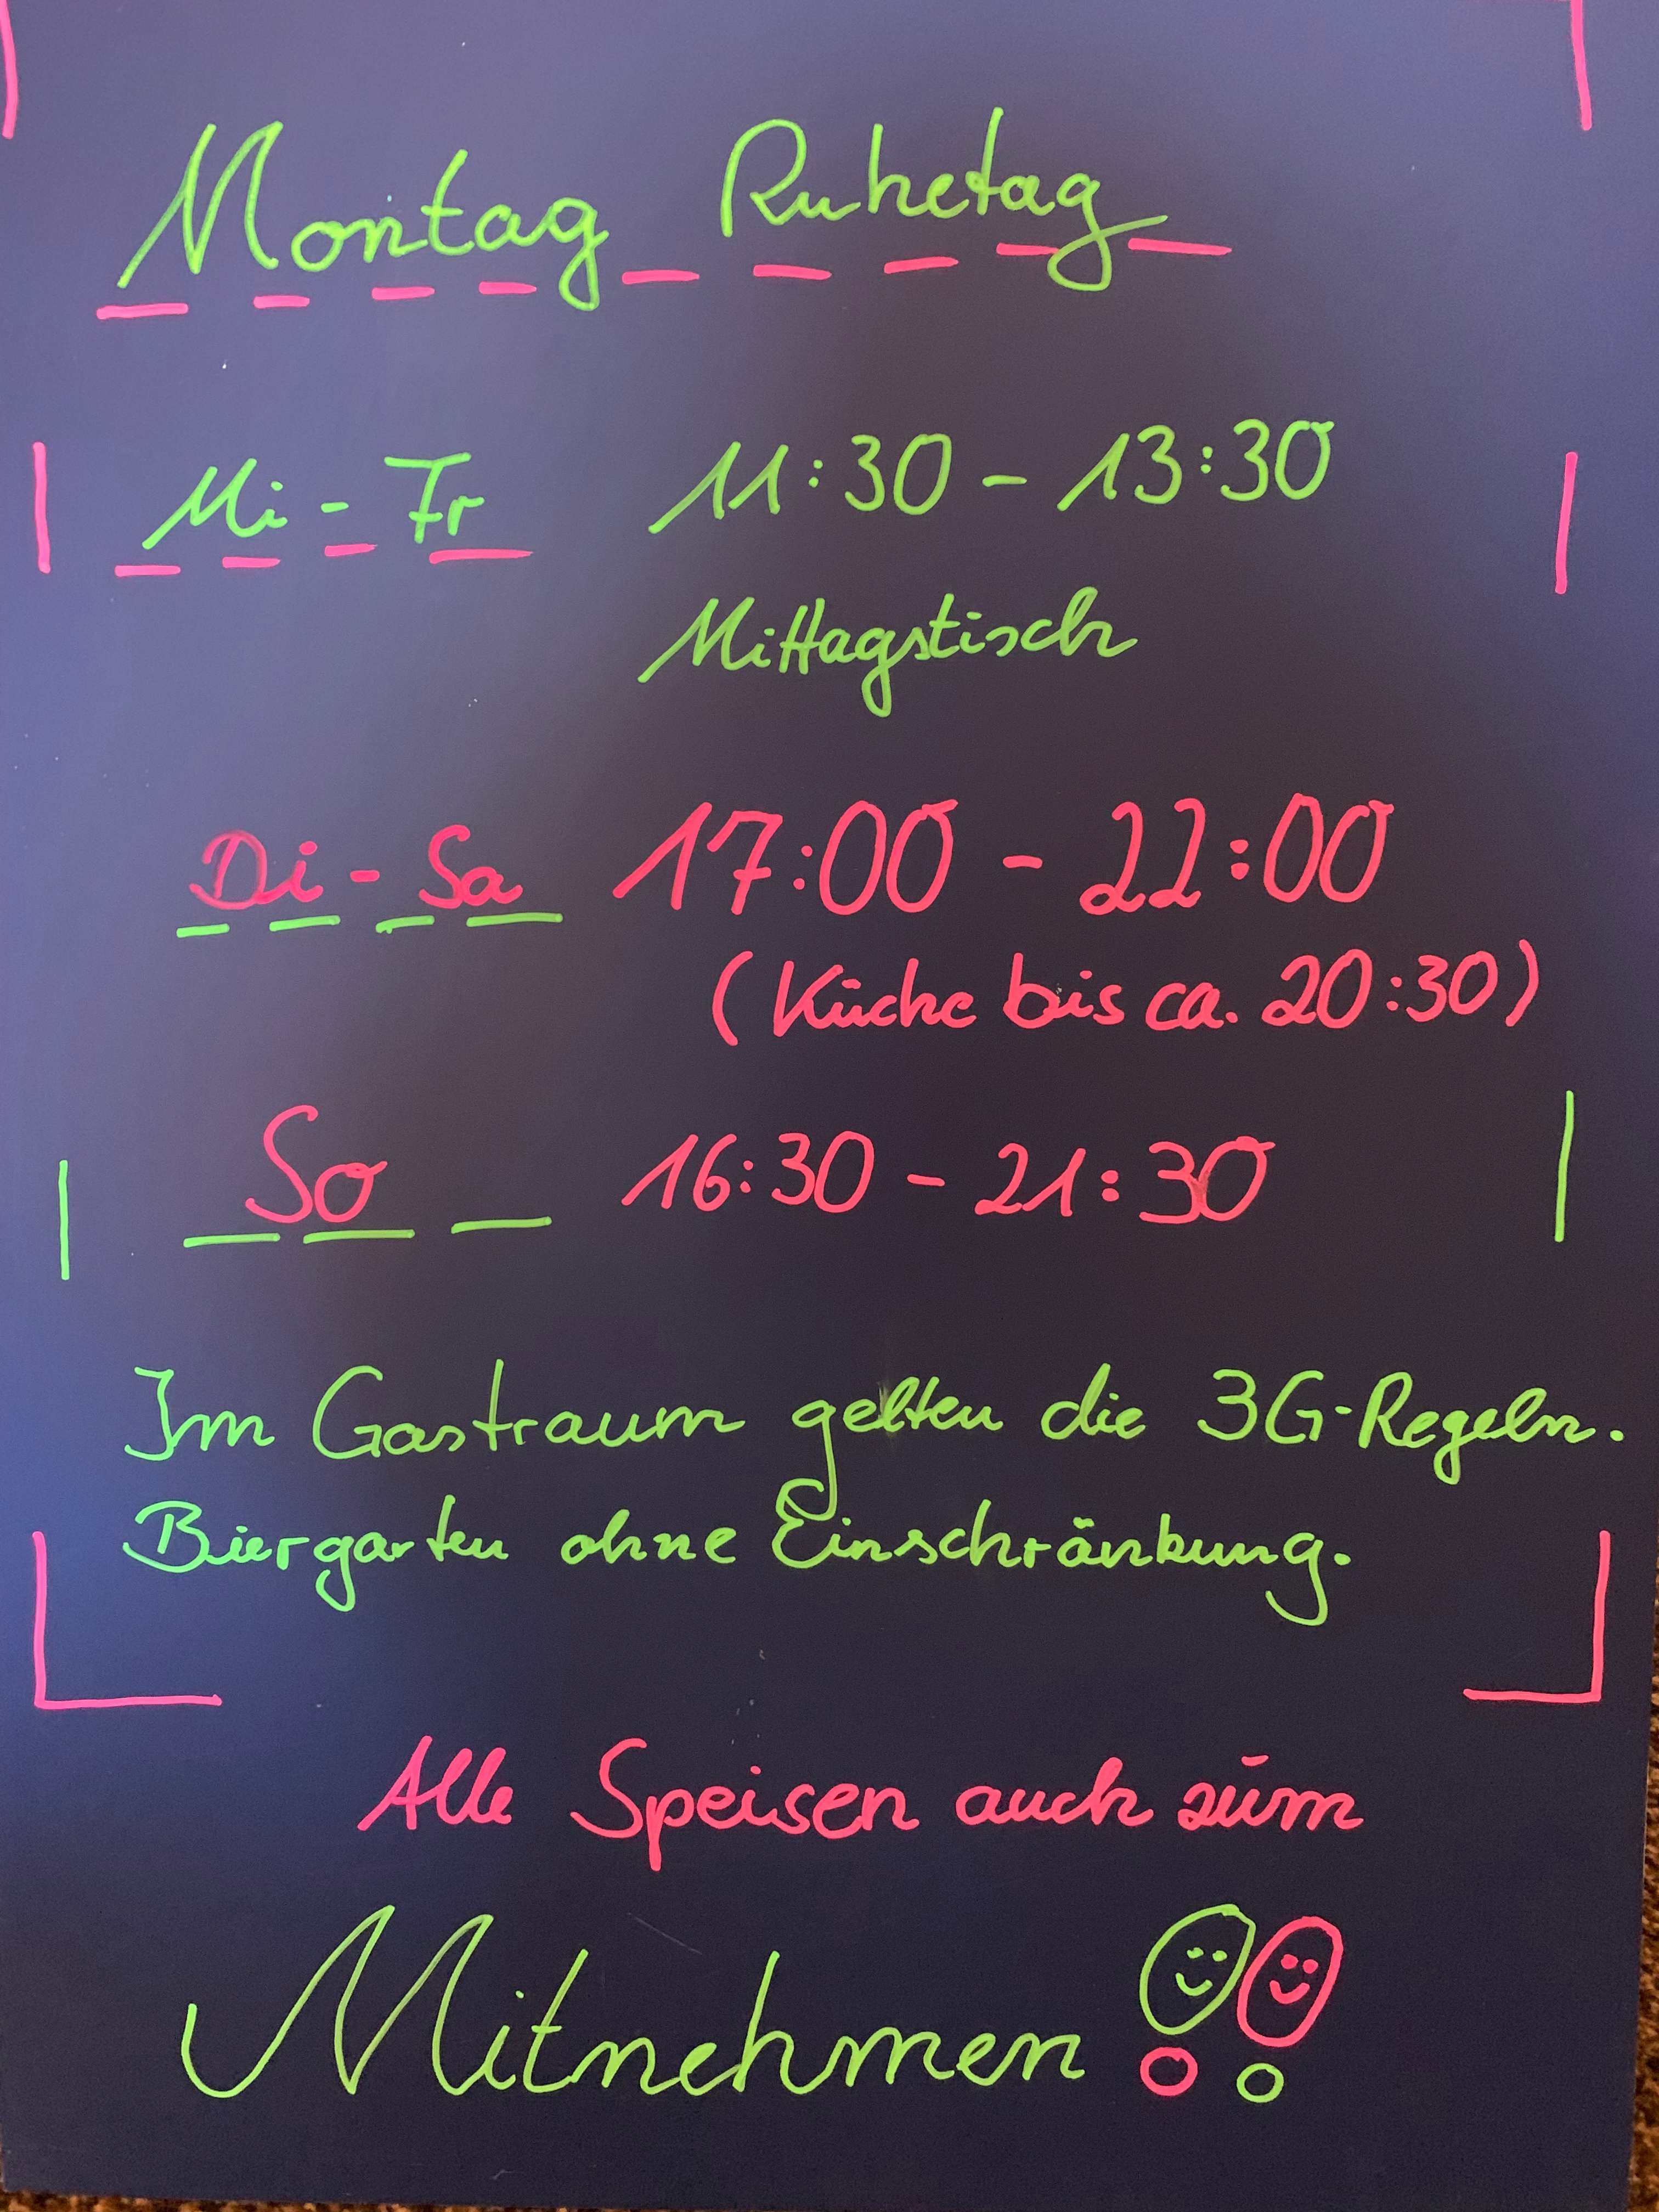 Montag Ruhetag
Mi - Fr 11:30 - 13:30
Mittagstisch
Di - Sa 17:00 - 22:00
(Küche bis ca. 20:30)
So 16:30 - 21:30
Im Gastraum gelten die 3G-Regeln.
Biergarten ohne Einschränkung.
Alle Speisen auch zum
Mitnehmen !!